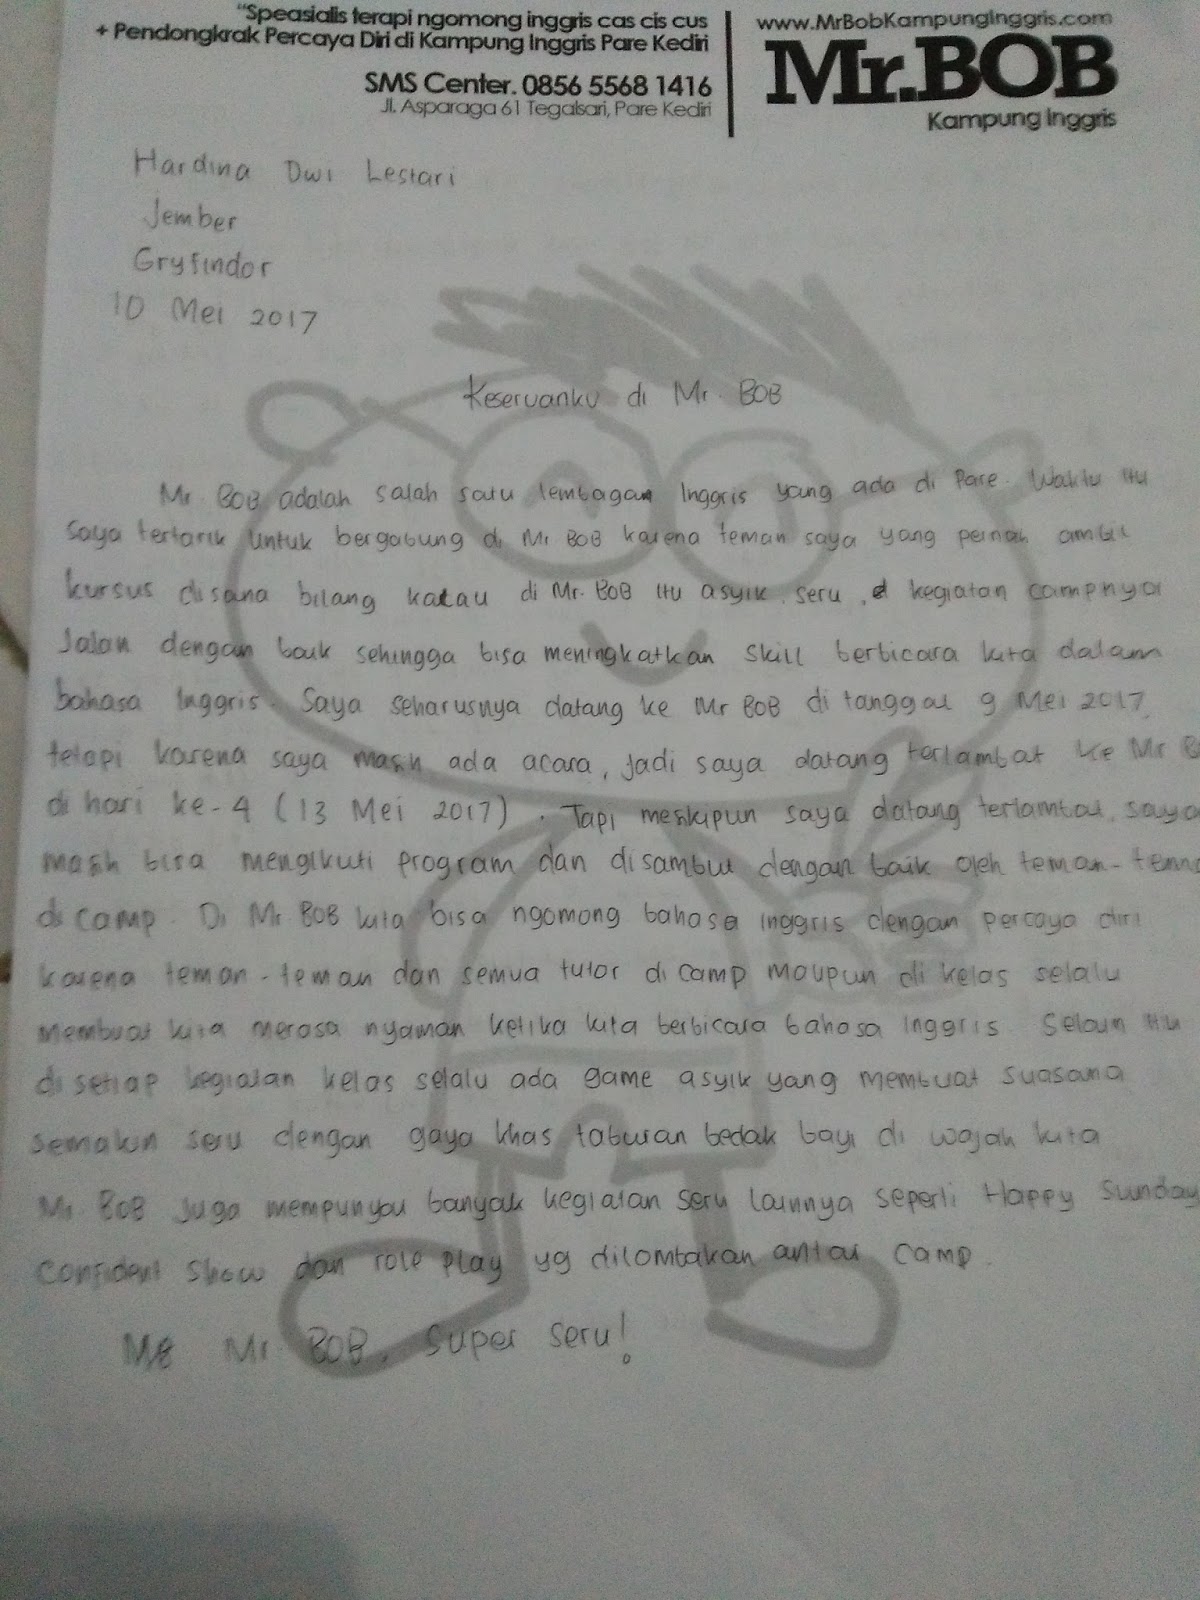 "Speasialis terapi ngomong inggris cas cis cus
+ Pendongkrak Percaya Diri di Kampung Inggris Pare Kediri
SMS Center. 0856 5568 1416
Jl. Asparaga 61 Tegalsari, Pare Kediri
www.MrBobKampungInggris.com
Mr.BOB
Kampung Inggris
Hardina Dwi Lestari
Jember
Gryfindor
10 Mei 2017
Keseruanku di Mr. BOB
Mr. BOB adalah salah satu lembagan Inggris yang ada di Pare. Waktu itu
saya tertarik untuk bergabung di Mr BOB karena teman saya yang pernah ambil
kursus disana bilang kalau di Mr. BOB itu asyik, seru, kegiatan campnya
Jalan dengan baik sehingga bisa meningkatkan skill berbicara kita dalam
bahasa Inggris. Saya seharusnya datang ke Mr BOB di tanggal 9 Mei 2017
tetapi karena saya masih ada acara, jadi saya datang terlambat ke Mr B
di hari ke-4 (13 Mei 2017). Tapi meskipun saya datang terlambat, saya
masih bisa mengikuti program dan disambut dengan baik oleh teman-tema
di camp. Di Mr. BOB kita bisa ngomong bahasa inggris dengan percaya diri
karena teman-teman dan semua tutor di camp maupun di kelas selalu
membuat kita merasa nyaman ketika kita berbicara bahasa Inggris. Selain itu
di setiap kegiatan kelas selalu ada game asyik yang membuat suasana
semakin seru dengan gaya khas taburan bedak bayi di wajah kita
Mr. BOB juga mempunyai banyak kegiatan seru lainnya seperti Happy Sunday
Confident Show dan role play yg dilombakan antar camp.
Mr BOB, super seru!